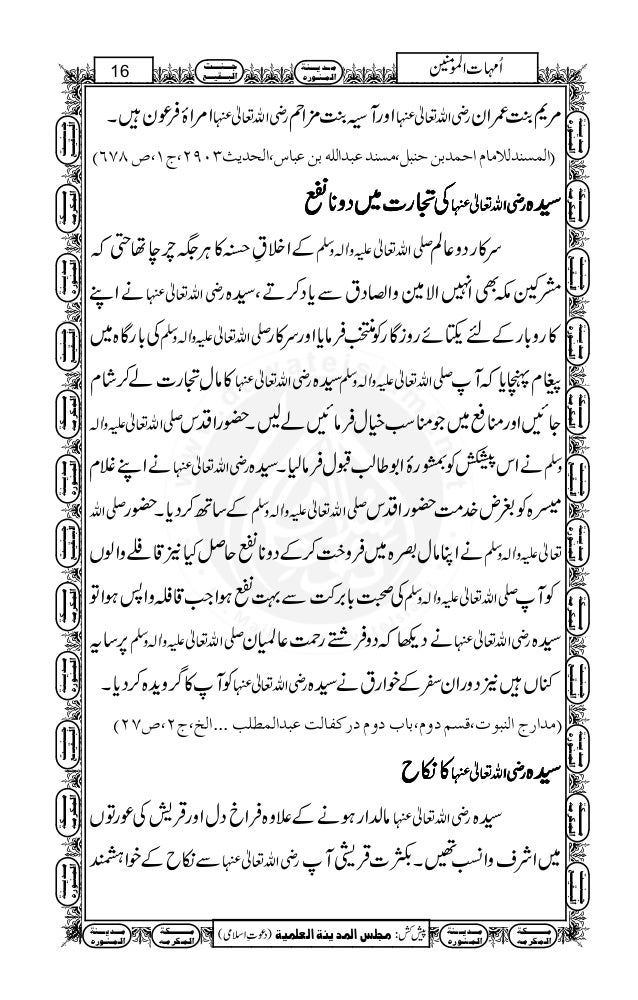 16
جنت البقیع
مدینۃ المنورہ
اُمہات المؤمنین
مریم بنت عمران رضی اللہ تعالیٰ عنہا اور آسیہ بنت مزاحم رضی اللہ تعالیٰ عنہا امراۂ فرعون ہیں۔
(المسندللامام احمدبن حنبل،مسند عبدالله بن عباس،الحدیث۲۹۰۳،ج۱،ص ۶۷۸)
سیدہ رضی اللہ تعالیٰ عنہا کی تجارت میں دونا نفع
سرکارِ دوعالم صلی اللہ تعالیٰ علیہ والہ وسلم کے اخلاقِ حسنہ کا ہر جگہ چرچا تھا حتی کہ
مشرکین مکہ بھی انہیں الامین والصادق سے یاد کرتے ،سیدہ رضی اللہ تعالیٰ عنہا نے اپنے
کاروبار کے لئے یکتائے روزگار کو منتخب فرمایا اور سرکار صلی اللہ تعالیٰ علیہ والہ وسلم کی بارگاہ میں
پیغام پہنچایا کہ آپ صلی اللہ تعالیٰ علیہ والہ وسلم سیدہ رضی اللہ تعالیٰ عنہا کا مال تجارت لے کر شام
جائیں اور منافع میں جو مناسب خیال فرمائیں لے لیں۔ حضور اقدس صلی اللہ تعالیٰ علیہ والہ
وسلم نے اس پیشکش کو بمشورۂ ابوطالب قبول فرمالیا۔ سیدہ رضی اللہ تعالیٰ عنہا نے اپنے غلام
میسرہ کو بغرض خدمت حضور اقدس صلی اللہ تعالیٰ علیہ والہ وسلم کے ساتھ کردیا۔ حضور صلی اللہ
تعالیٰ علیہ والہ وسلم نے اپنا مال بصرہ میں فروخت کرکے دونا نفع حاصل کیا نیز قافلے والوں
کو آپ صلی اللہ تعالیٰ علیہ والہ وسلم کی صحبت بابرکت سے بہت نفع ہوا جب قافلہ واپس ہوا تو
سیدہ رضی اللہ تعالیٰ عنہا نے دیکھا کہ دو فرشتے رحمت عالمیان صلی اللہ تعالیٰ علیہ والہ وسلم پر سایہ
کناں ہیں نیز دوران سفر کے خوارق نے سیدہ رضی اللہ تعالیٰ عنہا کو آپ کا گرویدہ کردیا۔
(مدارج النبوت،قسم دوم،باب دوم درکفالت عبدالمطلب ...الخ،ج۲،ص۲۷)
سیدہ رضی اللہ تعالیٰ عنہا کا نکاح
سیدہ رضی اللہ تعالیٰ عنہا مالدار ہونے کے علاوہ فراخ دل اور قریش کی عورتوں
میں اشرف وانسب تھیں۔ بکثرت قریشی آپ رضی اللہ تعالیٰ عنہا سے نکاح کے خواہشمند
پیش کش: مجلس المدینۃ العلمیۃ (دعوتِ اسلامی)